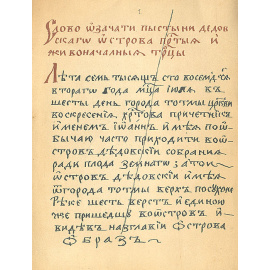 Слово ѡ҆зачати пꙋстыни дедов
скагѡ ѡ҆строва прⷭ҇тыѧ и
живоначалныѧ трⷪ҇цы
Лѣта семь тысѧщь сто восемдесѧ
втораго года мц҃а їюлѧ въ
шесть день города тотмы црк҃ви
воскресенїѧ хрⷭ҇това причетникъ
именемъ їѡаннъ имѣѧ по
бычаю часто приходити во ѡ
стровъ дѣдовскїи собранїѧ
ради плода земнагѡ затои
ѡстровъ дѣдовскїи имѣѧ
ѿгорода тотмы верхъ посꙋхонѣ
рекѣ шесть верстъ и единою
же пришедшꙋ воѡстровъ и
видевъ наглавїи ѻстрова
ѻбразъ